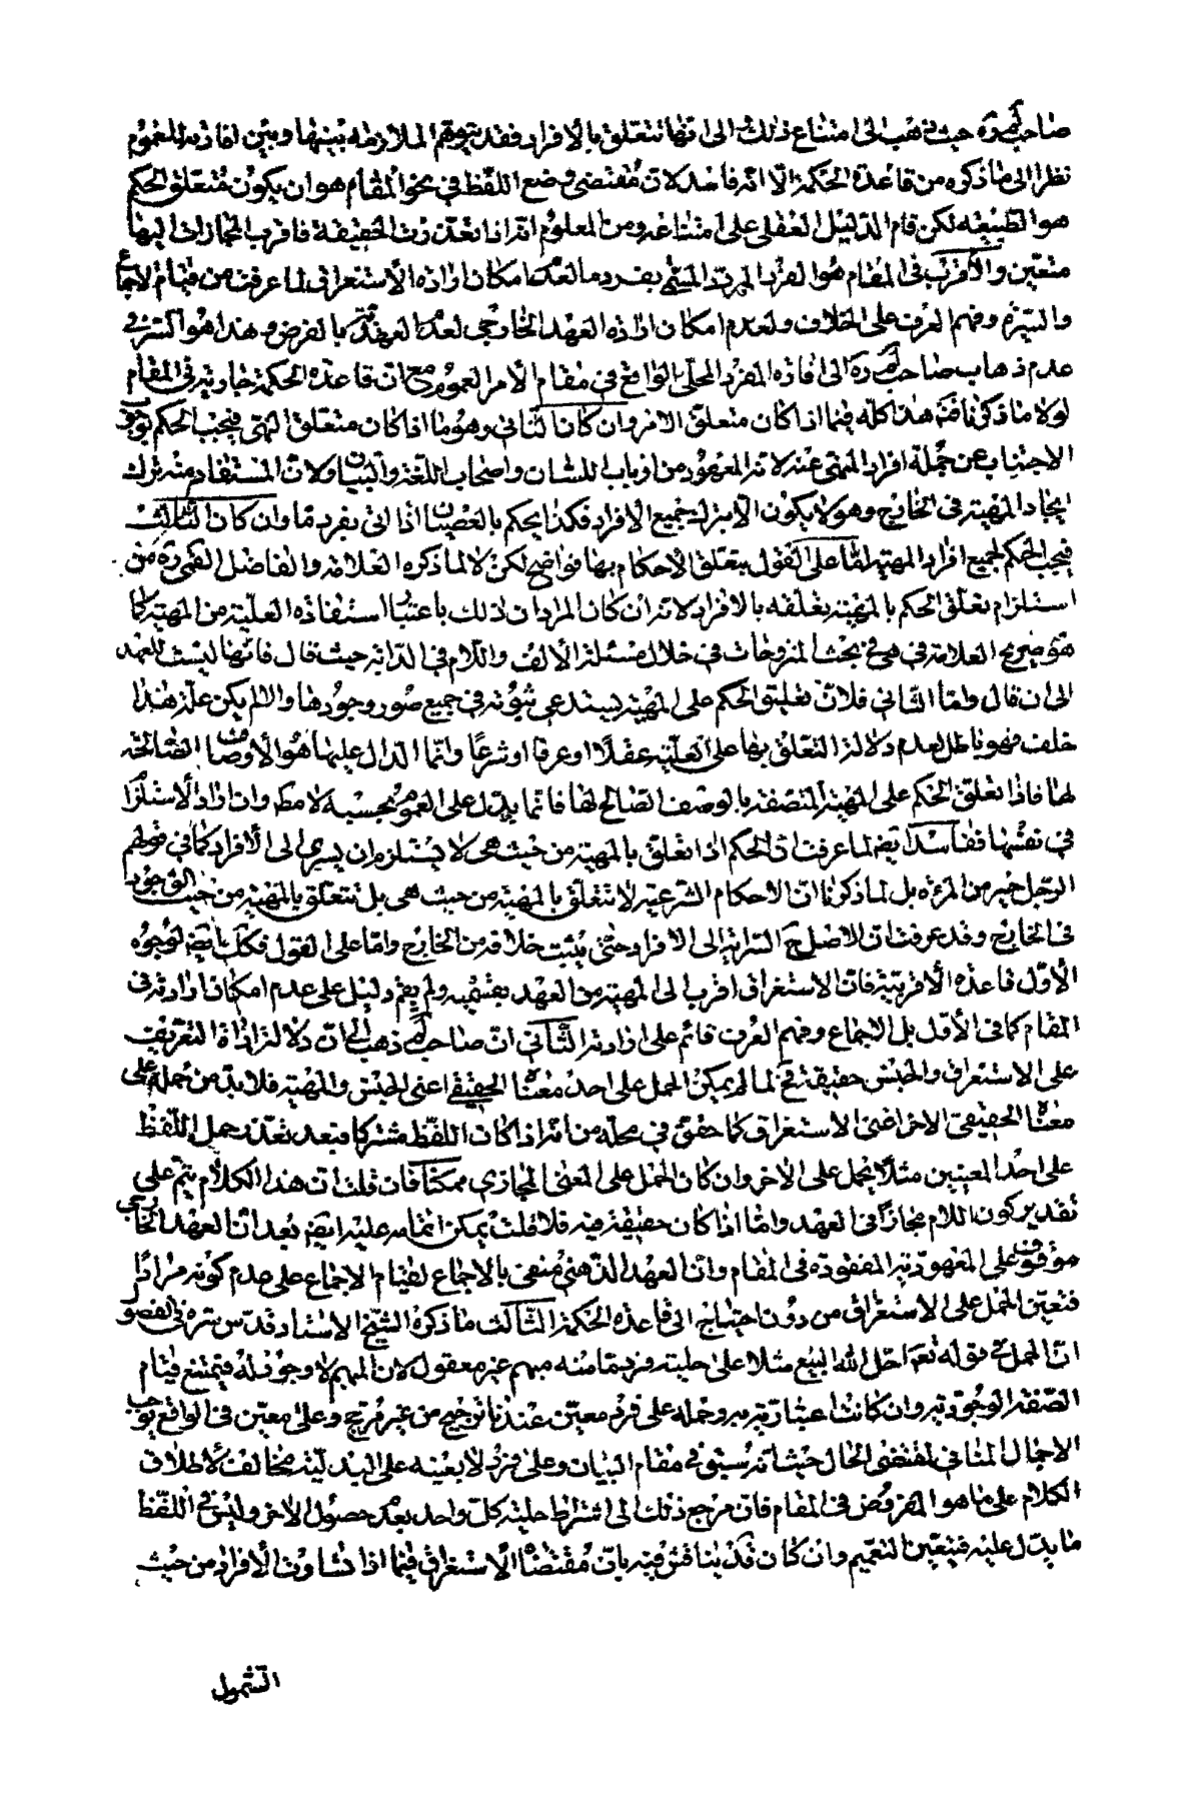 صاحب لم ره حيث ذهب الى امتناع ذلك الى انها تتعلق بالافراد فقد يتوهم الملازمة بينها وبين افادته للعموم
نظرا الى ما ذكره من قاعدة الحكمة الّا انه فاسد لان مقتضى وضع اللفظ في نحو المقام هو ان يكون متعلق الحكم
هو الطبيعة لكن قام الدليل العقلي على امتناعه ومن المعلوم انه اذا تعذرت الحقيقة فاقرب المجازات اليها
متعين والاقرب في المقام هو الفرد المردد المسمى بفرد ما لعدم امكان ارادة الاستغراق لما عرفت من قيام الاجماع
والسيرة وفهم العرف على الخلاف ولعدم امكان ارادة العهد الخارجي لعدم العهدية بالفرض وهذا هو السر في
عدم ذهاب صاحب لم ره الى افادة المفرد المحلى الواقع في مقام الامر العموم مع ان قاعدة الحكمة جارية في المقام
لولا ما ذكرنا فتم هذا كله فيما اذا كان متعلق الامر وان كان الثاني وهو ما اذا كان متعلق النهي فيجب الحكم بوجوب
الاجتناب عن جملة افراد المنهي عنه لانه المعهود من ارباب اللسان واصحاب اللغة والبيان ولان المستفاد منه ترك
ايجاد المهية في الخارج وهو لا يكون الا بترك جميع الافراد فكذا يحكم بالعصيان اذا اتى بفرد ما وان كان الثالث
فيجب الحكم لجميع افراد المهية اما على القول بتعلق الاحكام بها فواضح لكن لا لما ذكره العلامة والفاضل القمي ره من
استلزام تعلق الحكم بالمهية تعلقه بالافراد لانه ان كان المراد ان ذلك باعتبار استفادة العلية من المهية كما
هو صريح العلامة في هي في بحث المنزوحات في خلال مسئلة الالف واللام في الدابة حيث قال فانها ليست للعهد
الى ان قال واما الثاني فلان تعليق الحكم على المهية يستدعي ثبوته في جميع صور وجودها والا لم يكن علة هذا
خلف فهو باطل لعدم دلالة التعلق بها على العلية عقلا او عرفا او شرعا وانما الدال عليها هو الاوصاف الصالحة
لها فاذا تعلق الحكم على المهية المتصفة بالوصف الصالح لها فانما يدل على العموم بحسبه لا مط وان اراد الاستلزام
في نفسها ففاسد ايضا لما عرفت ان الحكم اذا تعلق بالمهية من حيث هي لا يستلزم ان يسري الى الافراد كما في قولهم
الرجل خير من المرءة بل لما ذكرنا ان الاحكام الشرعية لا تتعلق بالمهية من حيث هي بل تتعلق بالمهية من حيث الوجود
في الخارج وقد عرفت ان الاصل ح السراية الى الافراد حتى يثبت خلافه من الخارج واما على القول فكك ايضا لوجوه
الاول قاعدة الاقربية فان الاستغراق اقرب الى المهية من العهد بقسميه ولم يقم دليل على عدم امكان ارادته في
المقام كما في الاول بل الاجماع وفهم العرف قائم على ارادته الثاني ان صاحب لم ذهب الى ان دلالة اداة التعريف
على الاستغراق والجنس حقيقة فح لما لم يمكن الحمل على احد معناه الحقيقي اعني الجنس والمهية فلا بد من حمله على
معناه الحقيقي الاخر اعني الاستغراق كما حقق في محله من انه اذا كان اللفظ مشتركا فبعد تعذر حمل اللفظ
على احد المعنيين مثلا يحمل على الاخر وان كان الحمل على المعنى المجازي ممكنا فان قلت ان هذا الكلام يتم على
تقدير كون اللام مجازا في العهد واما اذا كان حقيقة فيه فلا قلت يمكن اتمامه عليه ايضا بعد ان العهد الخارجي
موقوف على المعهودية المفقودة في المقام وان العهد الذهني منفي بالاجماع لقيام الاجماع على عدم كونه مرادا
فتعين الحمل على الاستغراق من دون احتياج الى قاعدة الحكمة الثالث ما ذكره الشيخ الاستاد قدس سره في الفصول
ان الحمل في قوله تعه احل الله البيع مثلا على حلية فرد ما منه مبهم غير معقول لان المبهم لا وجود له فيمتنع قيام
الصفة الوجودية وان كانت اعتبارية به وحمله على فرد معين عندنا ترجيح من غير مرجح وعلى معين في الواقع يوجب
الاجمال المنافي لمقتضى الحال حيث انه سيق في مقام البيان وعلى فرد لا بعينه على البدلية مخالف لاطلاق
الكلام على ما هو المفروض في المقام فان مرجع ذلك الى اشتراط حلية كل واحد بعدم حصول الاخر وليس في اللفظ
ما يدل عليه فيتعين التعميم وان كان قد يناقش فيه بان مقتضاه الاستغراق فيما اذا تساوت الافراد من حيث
الشمول